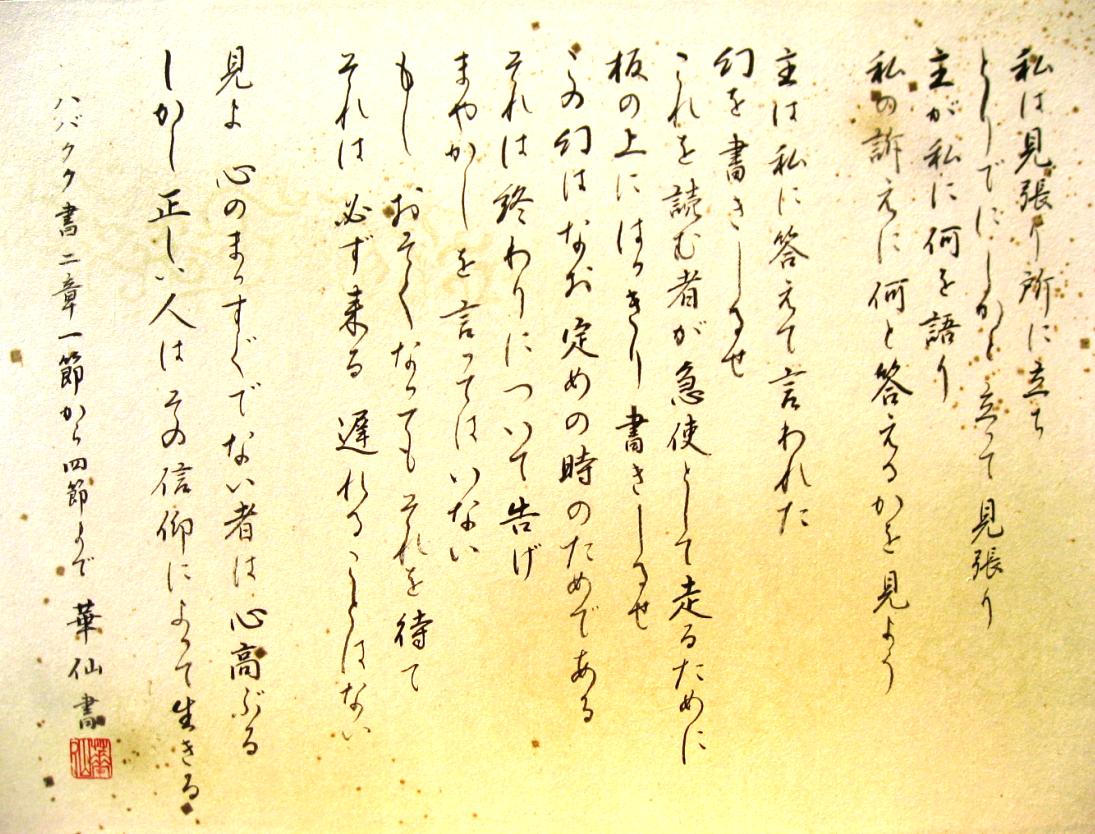 私は見張り所に立ち
とりでにしかと立って見張り
主が私に何を語り
私の訴えに何と答えるかを見よう
主は私に答えて言われた
幻を書きしるせ
これを読む者が急使として走るために
板の上にはっきり書きしるせ
この幻はなお定めの時のためである
それは終わりについて告げ
まやかしを言ってはいない
もし おそくなっても それを待て
それは 必ず来る 遅れることはない
見よ 心のまっすぐでない者は心高ぶる
しかし 正しい人は その信仰によって生きる
ハバクク書二章一節から四節まで 華仙書
華仙